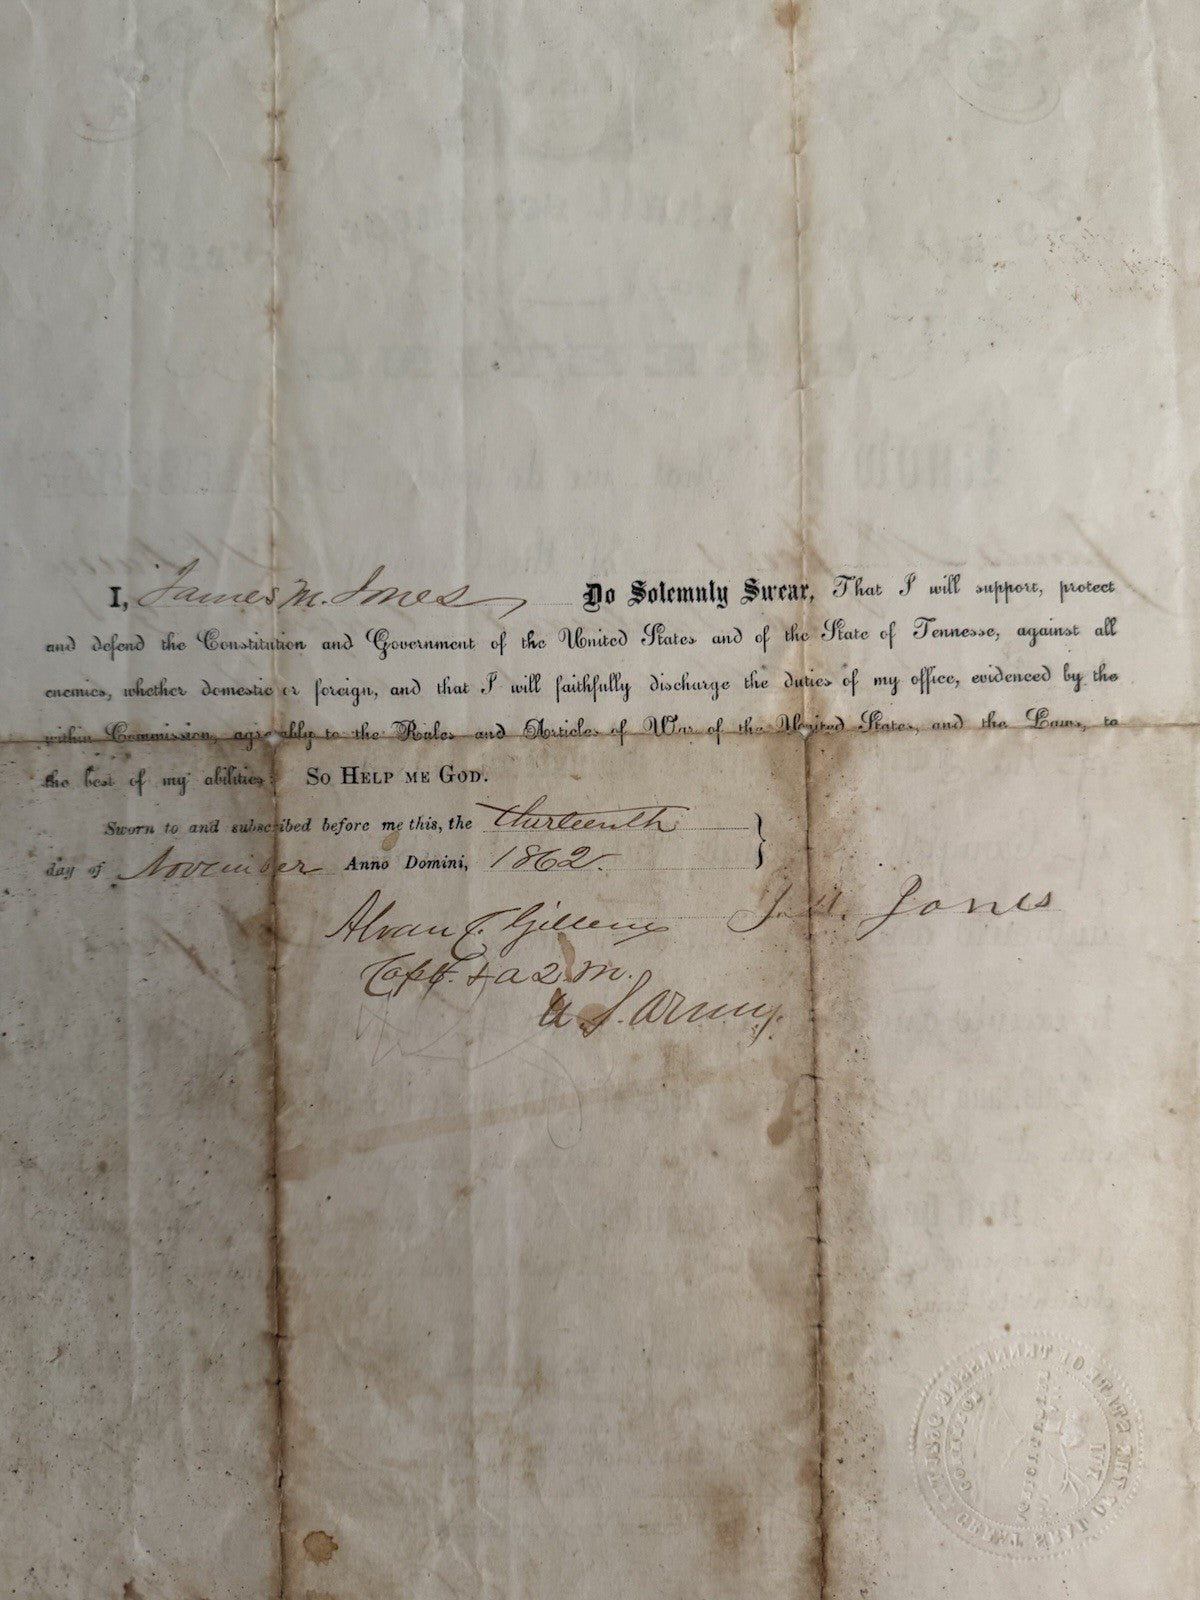 I, James M. Jones, Do Solemnly Swear, That I will support, protect
and defend the Constitution and Government of the United States and of the State of Tennesse, against all
enemies, whether domestic or foreign, and that I will faithfully discharge the duties of my office, evidenced by the
within Commission, agreably to the Rules and Articles of War of the United States, and the Laws, to
the best of my abilities: So Help me God.
Sworn to and subscribed before me this, the thirteenth
day of November Anno Domini, 1862.
J. M. Jones
Alvan C. Gillem
Capt. & A Q. M.
U. S. Army.